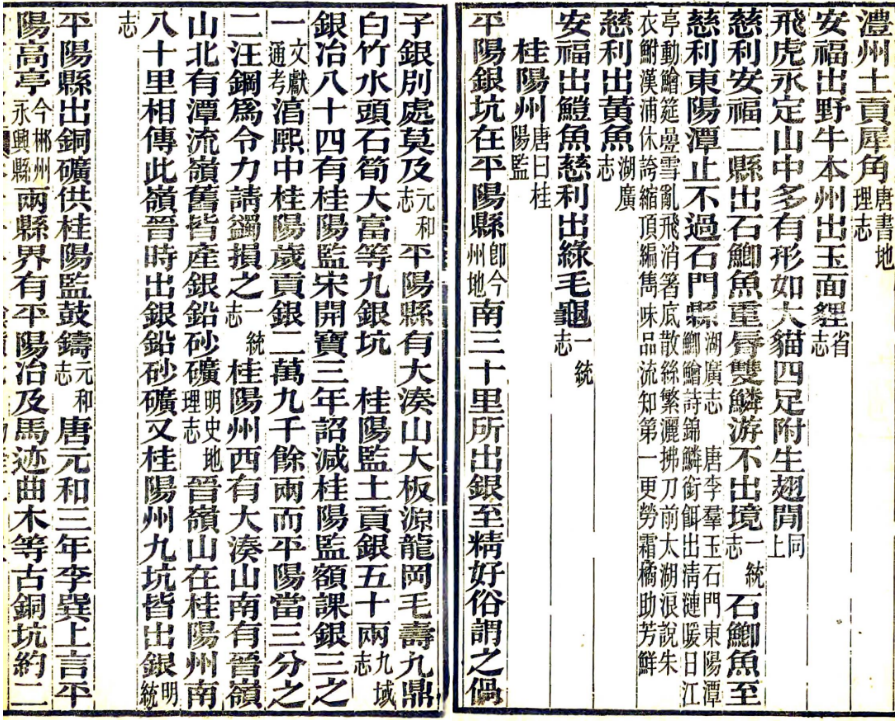 澧州土貢犀角唐書地理志
安福出野牛本州出玉面貍省志
飛虎永定山中多有形如大貓四足附生翅閒同上
慈利安福二縣出石鯽魚重唇雙鱗游不出境一統志 石鯽魚至
慈利東陽潭止不過石門縣湖廣志 唐李羣玉石門東陽潭鯽鱠詩錦鱗銜餌出清漣暖日江
亭動鱠筵疊雪亂飛消箸底散絲繁灑拂刀前太湖浪說朱
衣鮒漢浦休誇縮頂編雋味品流知第一更勞霜橘助芳鮮
慈利出黃魚湖廣志
安福出鱧魚慈利出綠毛龜一統志
桂陽州唐曰桂陽監
平陽銀坑在平陽縣卽今州地南三十里所出銀至精好俗謂之偈
子銀別處莫及元和志 平陽縣有大湊山大板源龍岡毛壽九鼎
白竹水頭石筍大富等九銀坑 桂陽監土貢銀五十兩九域志
銀冶八十四有桂陽監宋開寶三年詔減桂陽監額課銀三之
一文獻通考 湻熙中桂陽歲貢銀二萬九千餘兩而平陽當三分之
二汪鋼爲令力請蠲損之一統志 桂陽州西有大湊山南有晉嶺
山北有潭流嶺舊皆產銀鉛砂礦明史地理志 晉嶺山在桂陽州南
八十里相傳此嶺晉時出銀鉛砂礦又桂陽州九坑皆出銀明統
志
平陽縣出銅礦供桂陽監鼓鑄元和志 唐元和三年李巽上言平
陽高亭今郴州永興縣兩縣界有平陽冶及馬迹曲木等古銅坑約二